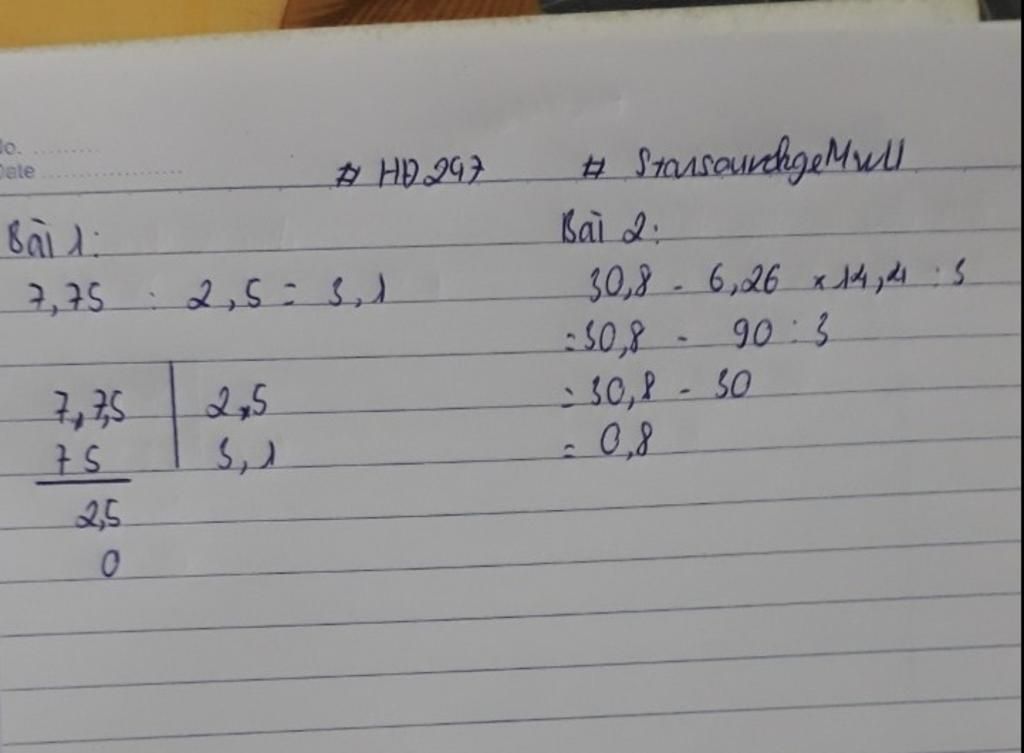 No. ..........
Date ....................
# HĐ247 # StarsourchgeMull
Bài 1:
7,75 : 2,5 = 3,1
7,7,5 | 2,5
75 | 3,1
2,5
0
Bài 2:
30,8 - 6,26 x 14,4 : 3
= 30,8 - 90 : 3
= 30,8 - 30
= 0,8